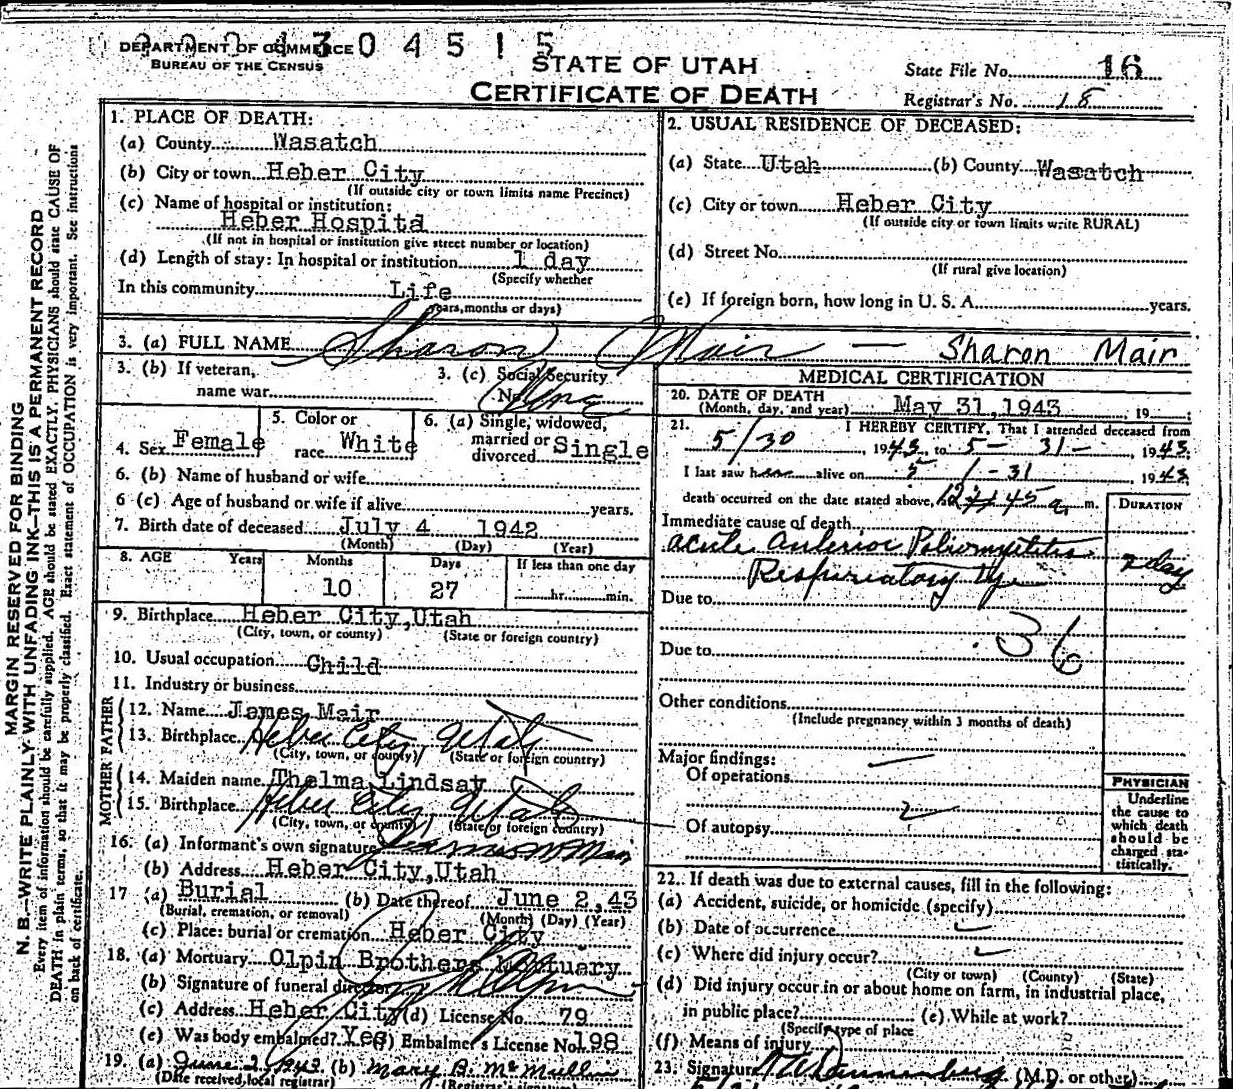 DEPARTMENT OF COMMERCE
BUREAU OF THE CENSUS
4 3 0 4 5 1 5
STATE OF UTAH
CERTIFICATE OF DEATH
State File No. 16
Registrar's No. 18
MARGIN RESERVED FOR BINDING
N. B.—WRITE PLAINLY WITH UNFADING INK—THIS IS A PERMANENT RECORD
Every item of information should be carefully supplied. AGE should be stated EXACTLY. PHYSICIANS should state CAUSE OF
DEATH in plain terms, so that it may be properly classified. Exact statement of OCCUPATION is very important. See instructions
on back of certificate.
1. PLACE OF DEATH:
(a) County Wasatch
(b) City or town Heber City
(If outside city or town limits name Precinct)
(c) Name of hospital or institution:
Heber Hospital
(If not in hospital or institution give street number or location)
(d) Length of stay: In hospital or institution 1 day
(Specify whether
In this community Life
years, months or days)
2. USUAL RESIDENCE OF DECEASED:
(a) State Utah (b) County Wasatch
(c) City or town Heber City
(If outside city or town limits write RURAL)
(d) Street No.
(If rural give location)
(e) If foreign born, how long in U. S. A. years.
3. (a) FULL NAME Sharon Mair — Sharon Mair
3. (b) If veteran, name war
3. (c) Social Security No. None
4. Sex Female
5. Color or race White
6. (a) Single, widowed, married or divorced Single
6. (b) Name of husband or wife
6 (c) Age of husband or wife if alive years.
7. Birth date of deceased July 4 1942
(Month) (Day) (Year)
8. AGE Years Months Days If less than one day
10 27 hr. min.
9. Birthplace Heber City, Utah
(City, town, or county) (State or foreign country)
10. Usual occupation Child
11. Industry or business
FATHER
12. Name James Mair
13. Birthplace Heber City, Utah
(City, town, or county) (State or foreign country)
MOTHER
14. Maiden name Thelma Lindsay
15. Birthplace Heber City, Utah
(City, town, or county) (State or foreign country)
16. (a) Informant's own signature
(b) Address Heber City, Utah
17 (a) Burial (b) Date thereof June 2, 43
(Burial, cremation, or removal) (Month) (Day) (Year)
(c) Place: burial or cremation Heber City
18. (a) Mortuary Olpin Brothers Mortuary
(b) Signature of funeral director
(c) Address Heber City (d) License No. 79
(e) Was body embalmed? Yes (f) Embalmer's License No. 198
19. (a) June 2, 1943 (b) Mary B. McMullin
(Date received, local registrar) (Registrar's
MEDICAL CERTIFICATION
20. DATE OF DEATH
(Month, day, and year) May 31, 1943, 19
21. I HEREBY CERTIFY, That I attended deceased from
5/30, 1943, to 5-31-, 1943.
I last saw her alive on 5/-31 1943
death occurred on the date stated above, 12:45 a. m.
DURATION
Immediate cause of death
Acute Anterior Poliomyelitis 2 day
Respiratory Type
Due to
36
Due to
Other conditions
(Include pregnancy within 3 months of death)
Major findings:
Of operations
Of autopsy
PHYSICIAN
Underline
the cause to
which death
should be
charged sta-
tistically.
22. If death was due to external causes, fill in the following:
(a) Accident, suicide, or homicide (specify)
(b) Date of occurrence
(c) Where did injury occur?
(City or town) (County) (State)
(d) Did injury occur in or about home on farm, in industrial place,
in public place? (e) While at work?
(Specify type of place
(f) Means of injury
23. Signature (M.D. or other)